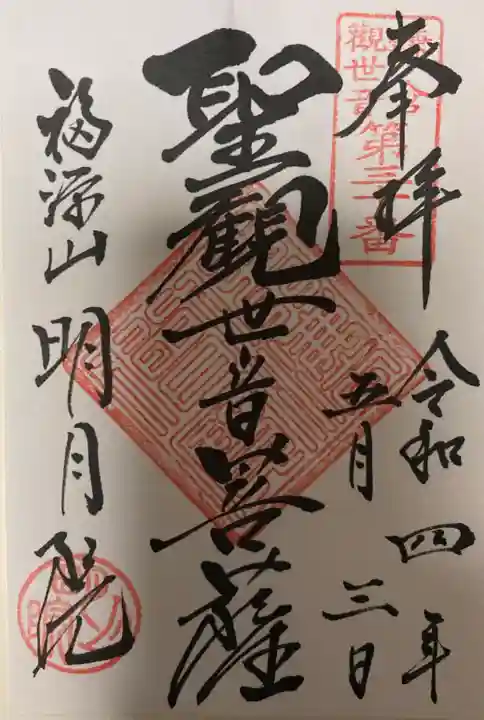 奉拝
令和四年
五月三日
觀世音第三十番
聖觀世音菩薩
福源山明月院